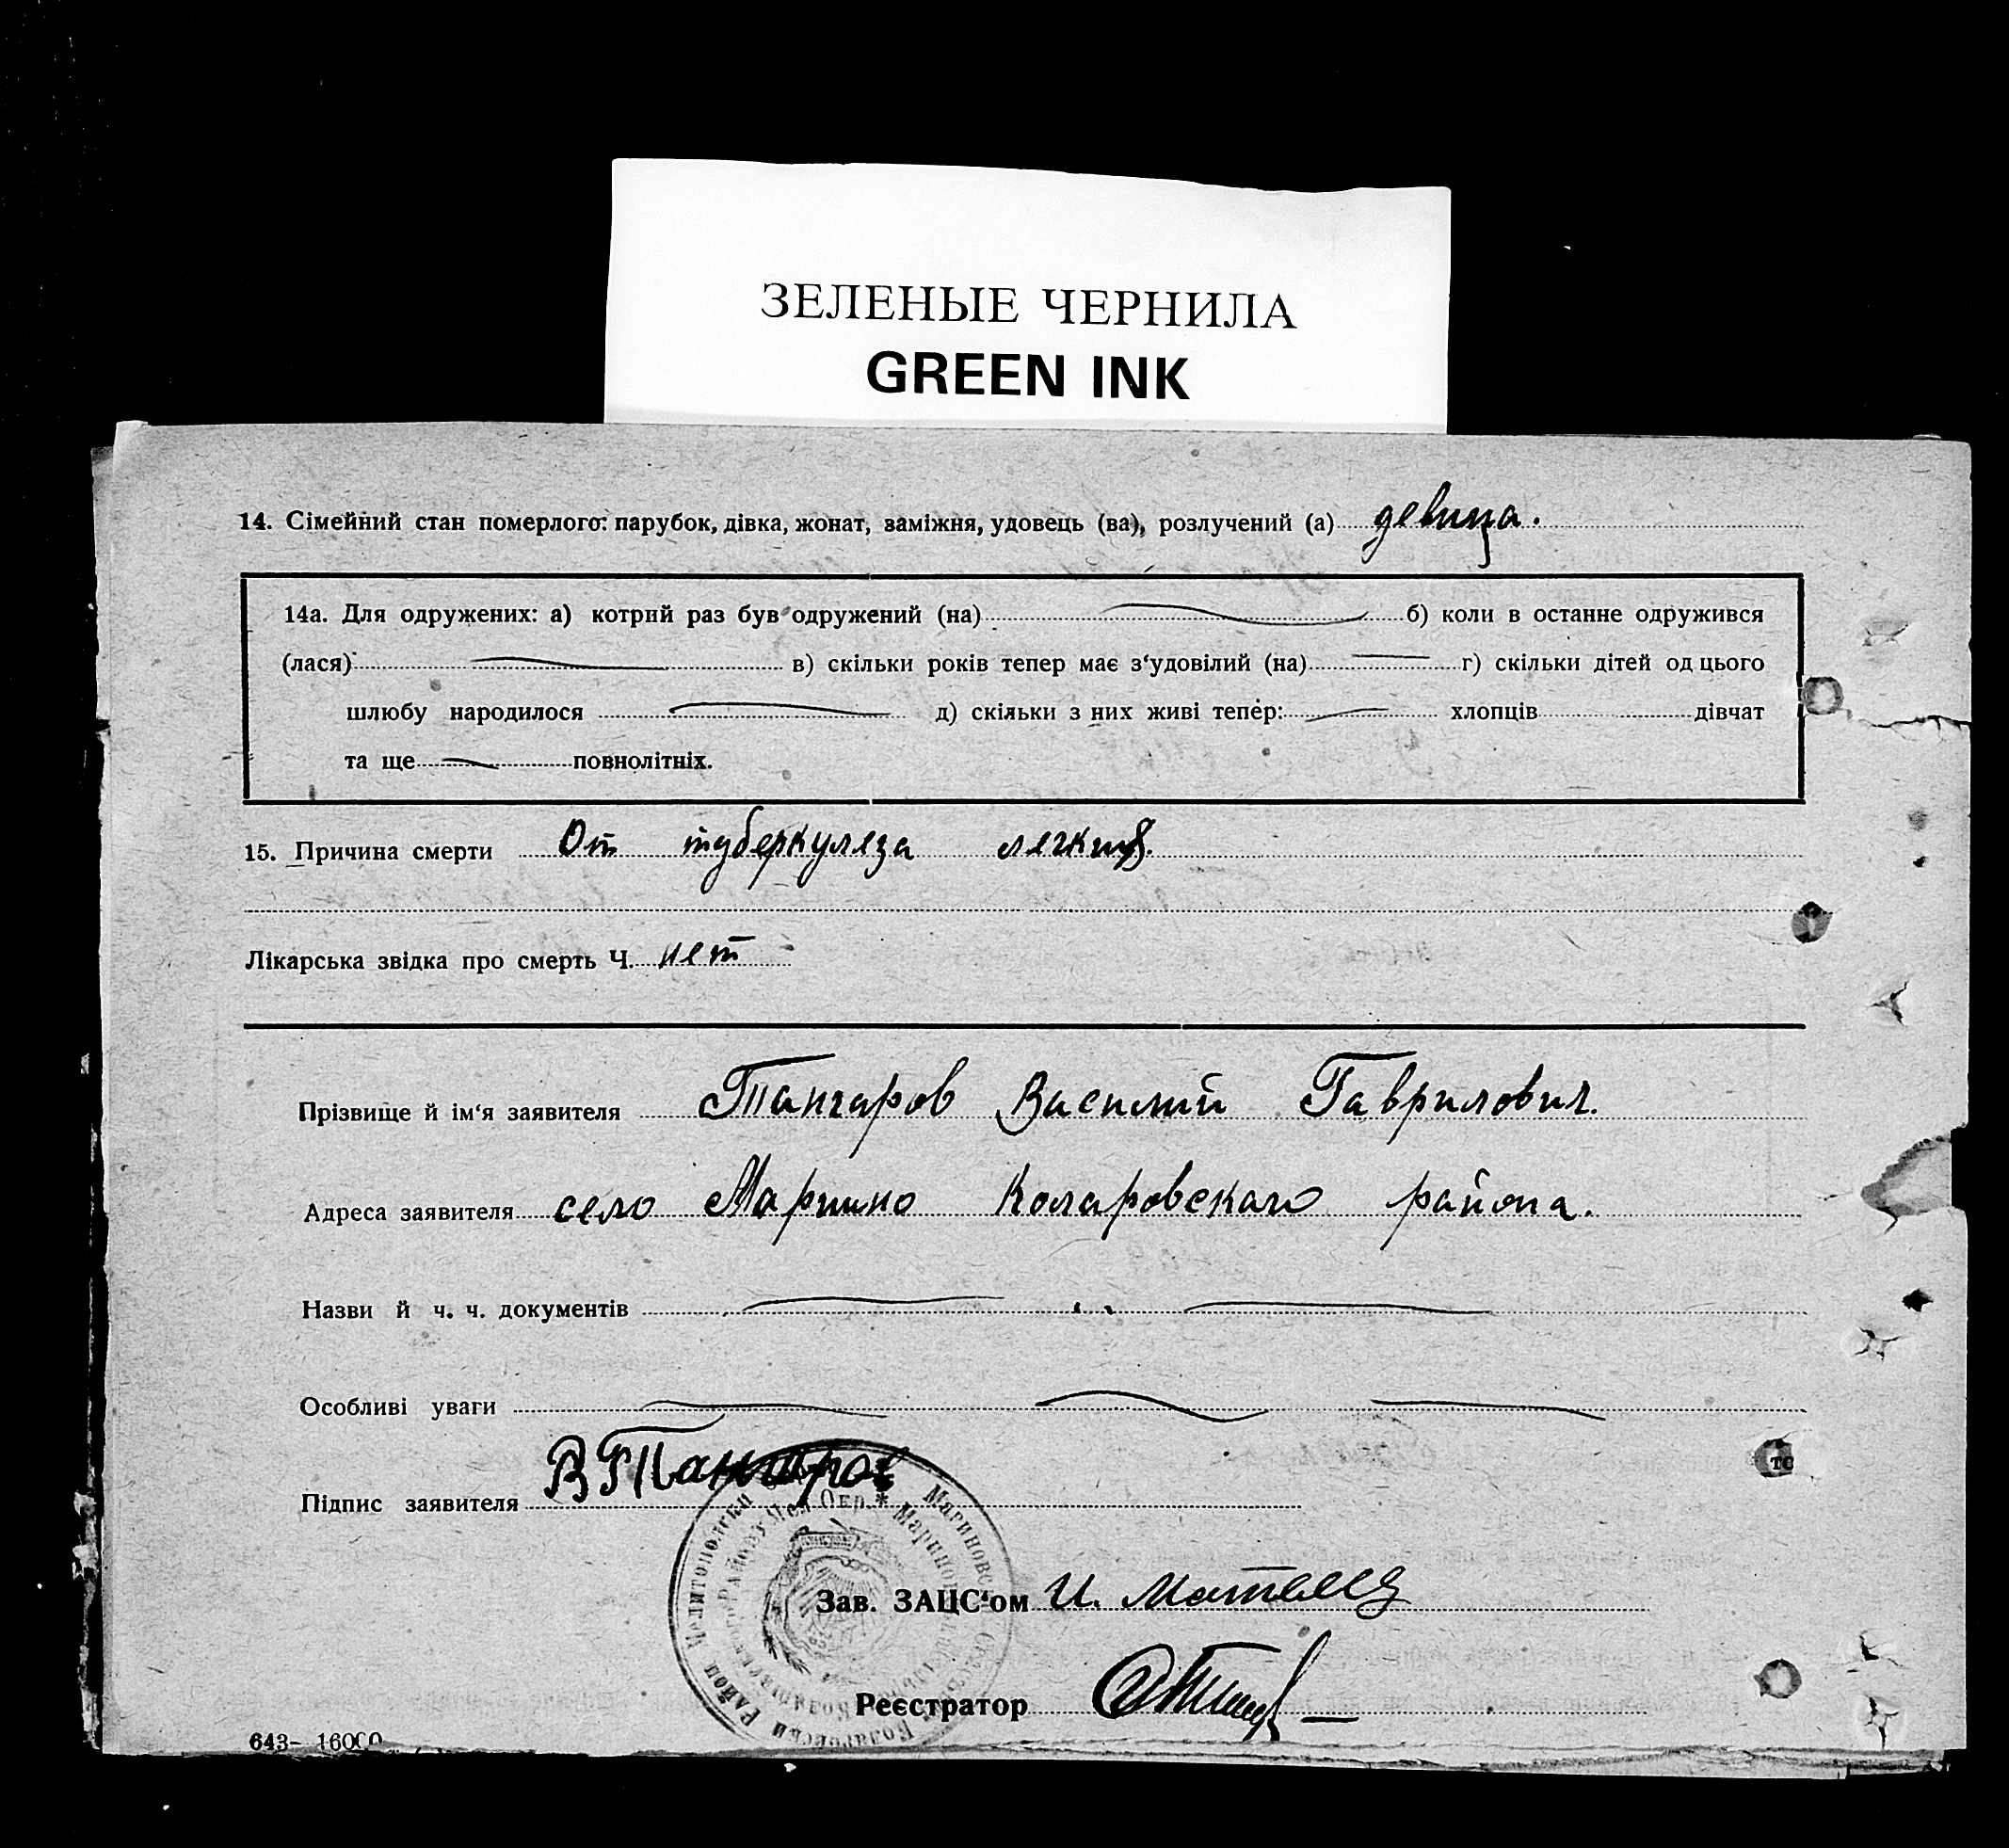 ЗЕЛЕНЫЕ ЧЕРНИЛА
GREEN INK
14. Сімейний стан померлого: парубок, дівка, жонат, заміжня, удовець (ва), розлучений (а) девица.
14а. Для одружених: а) котрий раз був одружений (на) б) коли в останне одружився
(лася) в) скільки років тепер має з‘удовілий (на) г) скільки дітей од цього
шлюбу народилося д) скільки з них живі тепер: хлопців дівчат
та ще повнолітніх.
15. Причина смерти От туберкулеза легких.
Лікарська звідка про смерть Ч. нет
Прізвище й ім‘я заявителя Тангаров Василий Гаврилович.
Адреса заявителя село Марино Коларовского района.
Назви й ч. ч. документів
Особливі уваги
Підпис заявителя В Г Тангаров
Зав. ЗАЦС‘ом И.
Реєстратор
643– 16000